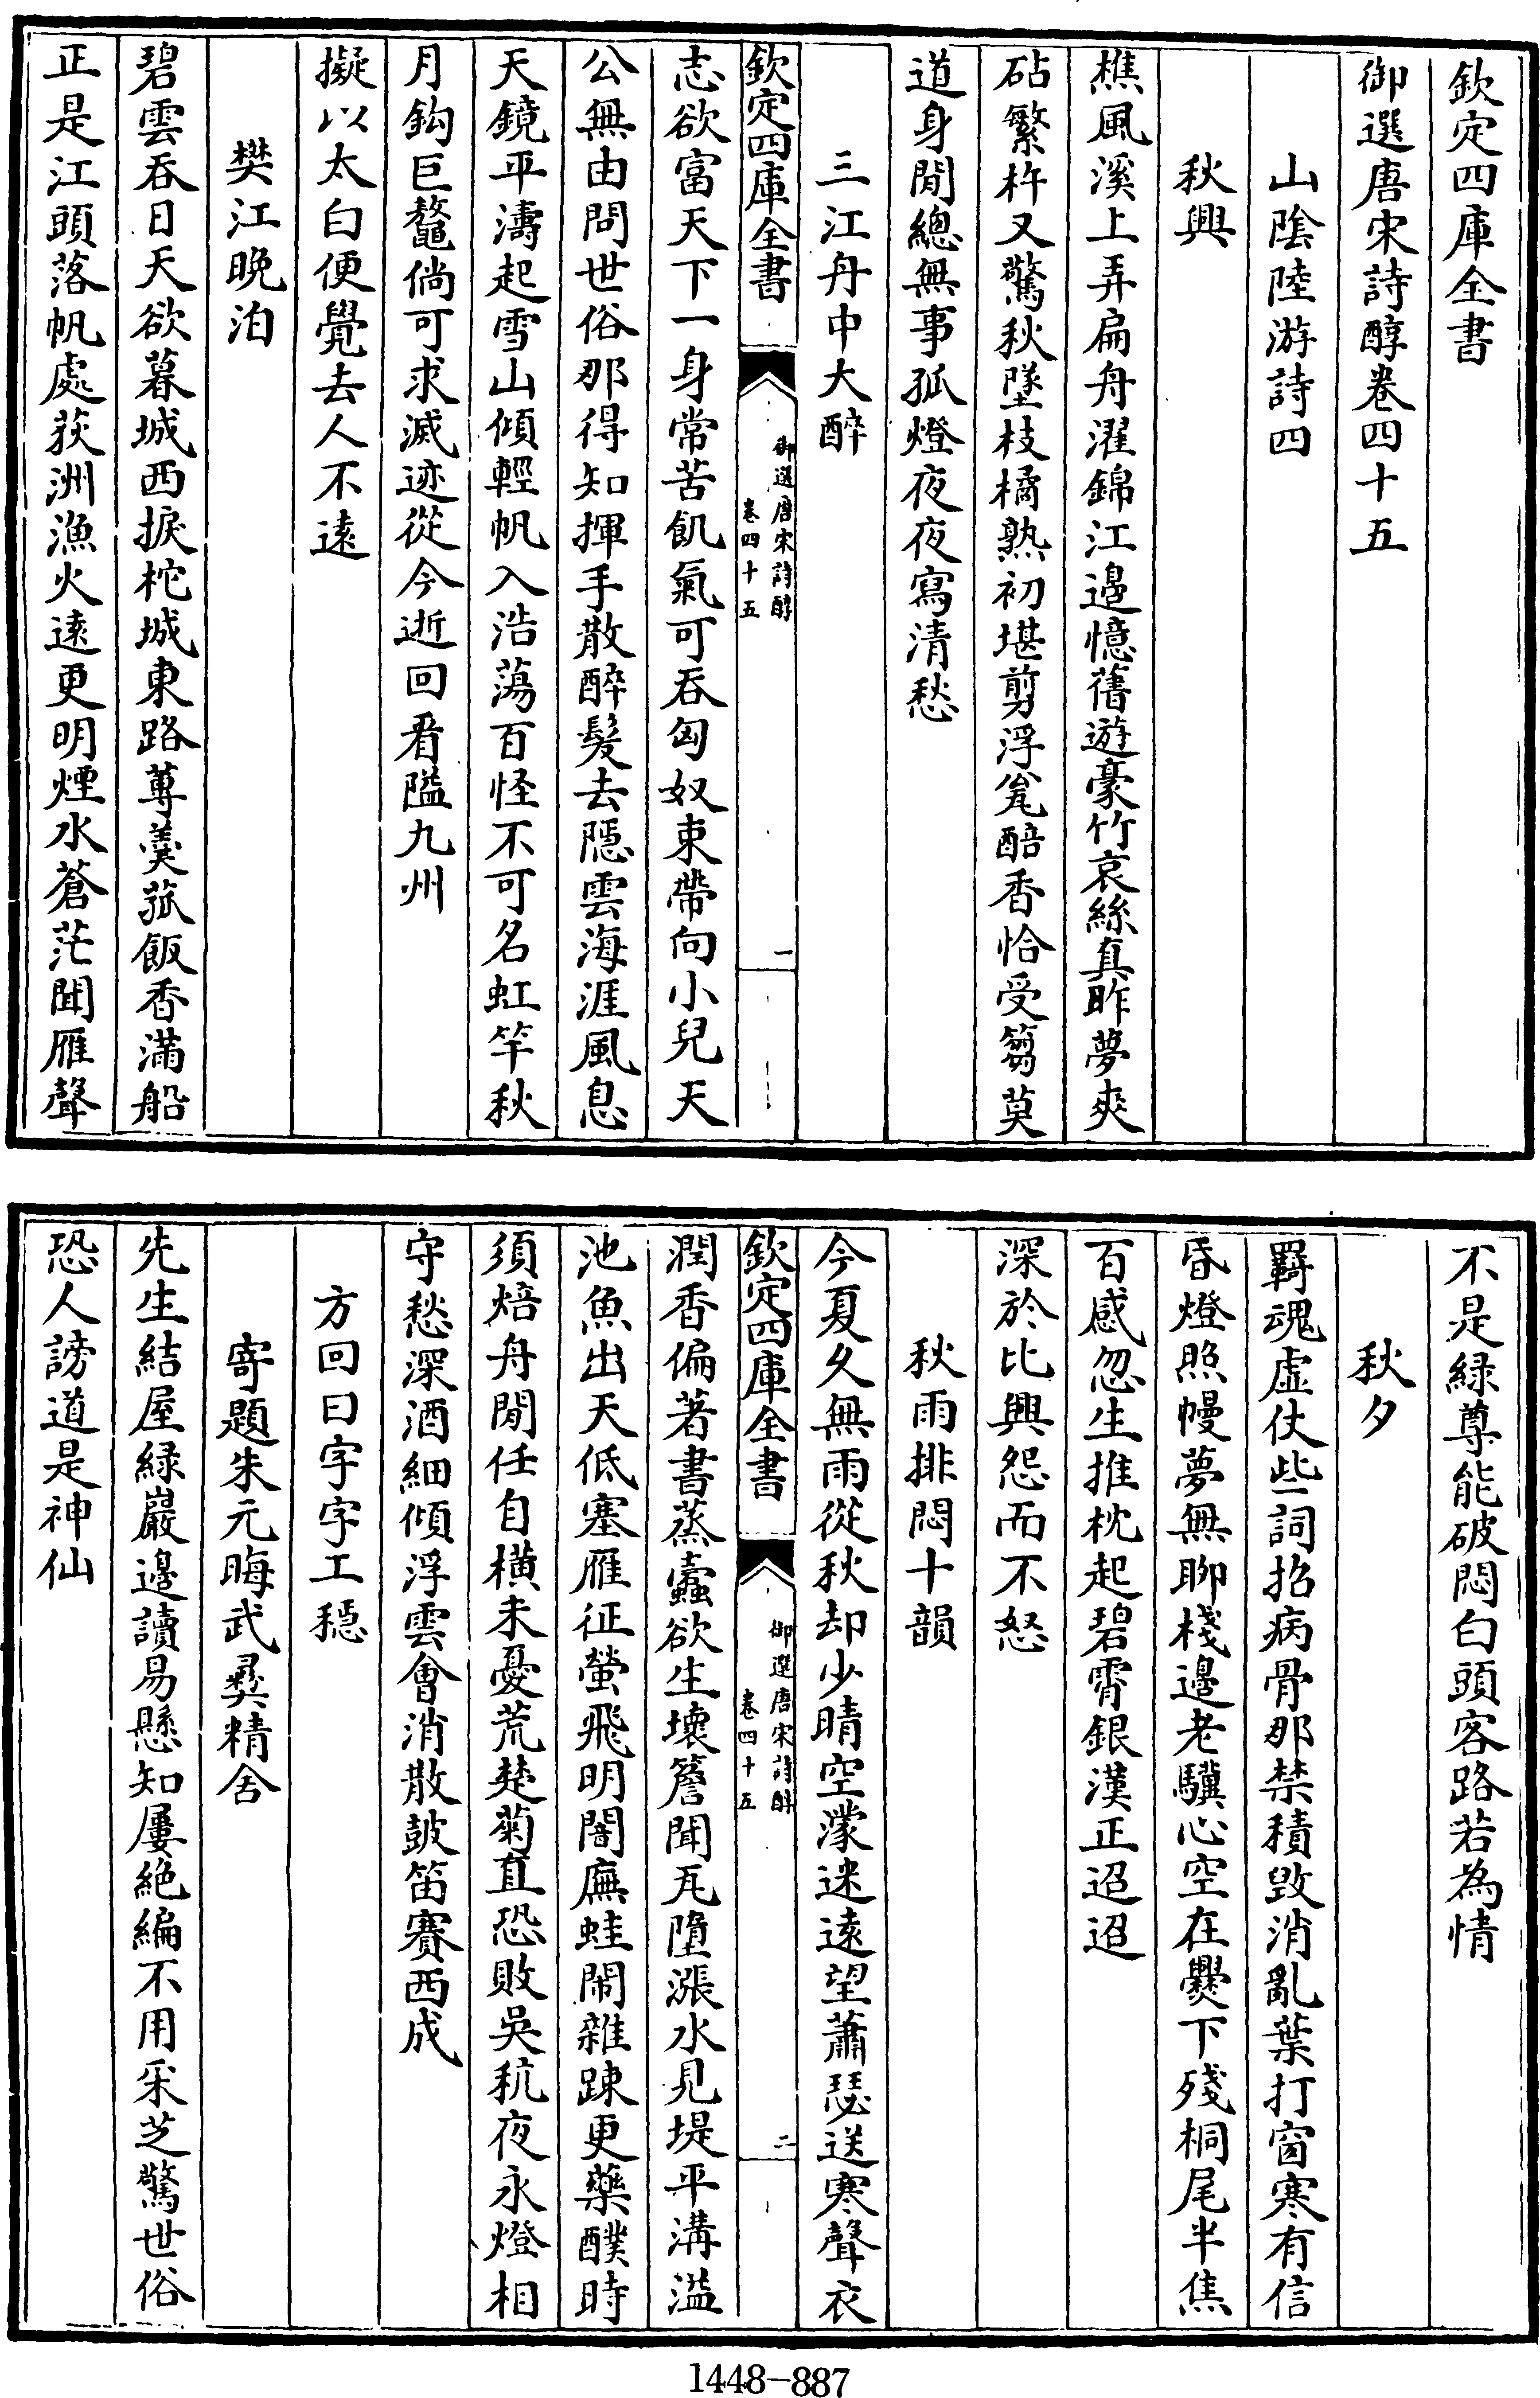 欽定四庫全書
御選唐宋詩醇卷四十五
山陰陸游詩四
秋興
樵風溪上弄扁舟濯錦江邉憶舊遊豪竹哀絲真昨夢爽
砧繁杵又驚秋墜枝橘熟初堪剪浮瓮醅香恰受篘莫
道身閒總無事孤燈夜夜寫清愁
三江舟中大醉
欽定四庫全書
御選唐宋詩醇
卷四十五
一
志欲富天下一身常苦飢氣可吞匈奴束帶向小兒天
公無由問世俗那得知揮手散醉髮去隱雲海涯風息
天鏡平濤起雪山傾輕帆入浩蕩百怪不可名虹竿秋
月鈎巨鼇倘可求滅迹從今逝回看隘九州
擬以太白便覺去人不遠
樊江晚泊
碧雲吞日天欲暮城西捩柁城東路蓴羹菰飯香滿船
正是江頭落帆處荻洲漁火遠更明煙水蒼茫聞雁聲
不是緑尊能破悶白頭客路若為情
秋夕
羇魂虛仗些詞招病骨那禁積毀消亂葉打窗寒有信
昏燈照幔夢無聊棧邉老驥心空在爨下殘桐尾半焦
百感忽生推枕起碧霄銀漢正迢迢
深於比興怨而不怒
秋雨排悶十韻
今夏久無雨從秋却少晴空濛迷遠望蕭瑟送寒聲衣
欽定四庫全書
御選唐宋詩醇
卷四十五
二
潤香偏著書蒸蠹欲生壞簷聞瓦墮漲水見堤平溝溢
池魚出天低塞雁征螢飛明闇廡蛙鬧雜踈更藥醭時
須焙舟閒任自橫未憂荒楚菊直恐敗吳秔夜永燈相
守愁深酒細傾浮雲會消散鼓笛賽西成
方回曰字字工穩
寄題朱元晦武彛精舍
先生結屋緑巖邉讀易懸知屢絶編不用采芝驚世俗
恐人謗道是神仙
1448-887